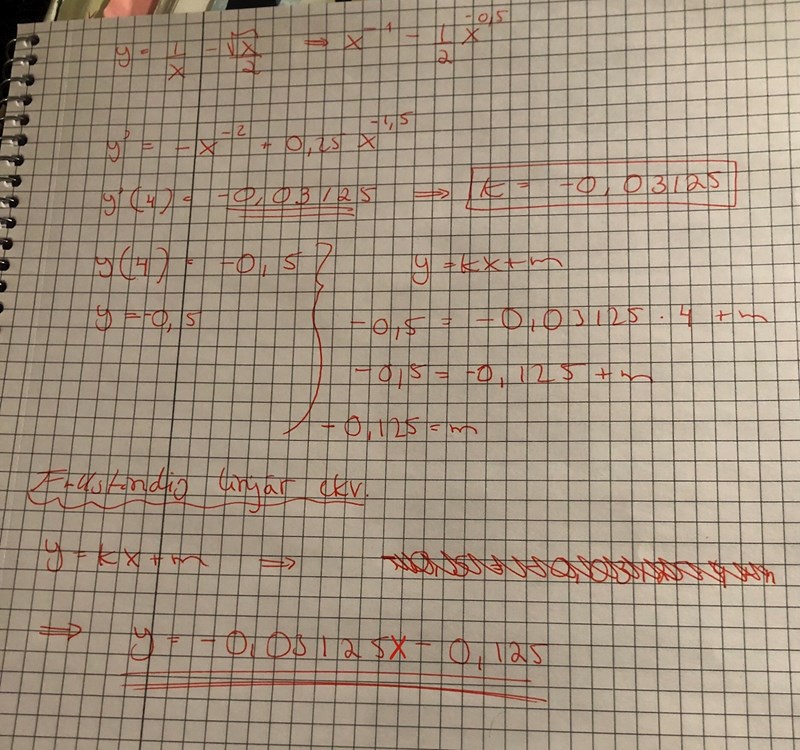 y = 1/x - √x/2 ⇒ x⁻¹ - 1/2 x^-0,5
y' = -x⁻² + 0,25 x^-1,5
y'(4) = -0,03125 ⇒ k = -0,03125
y(4) = -0,5
y = -0,5
y = kx+m
-0,5 = -0,03125 · 4 + m
-0,5 = -0,125 + m
-0,125 = m
Fullständig linjär ekv.
y = kx+m ⇒
⇒ y = -0,03125x - 0,125